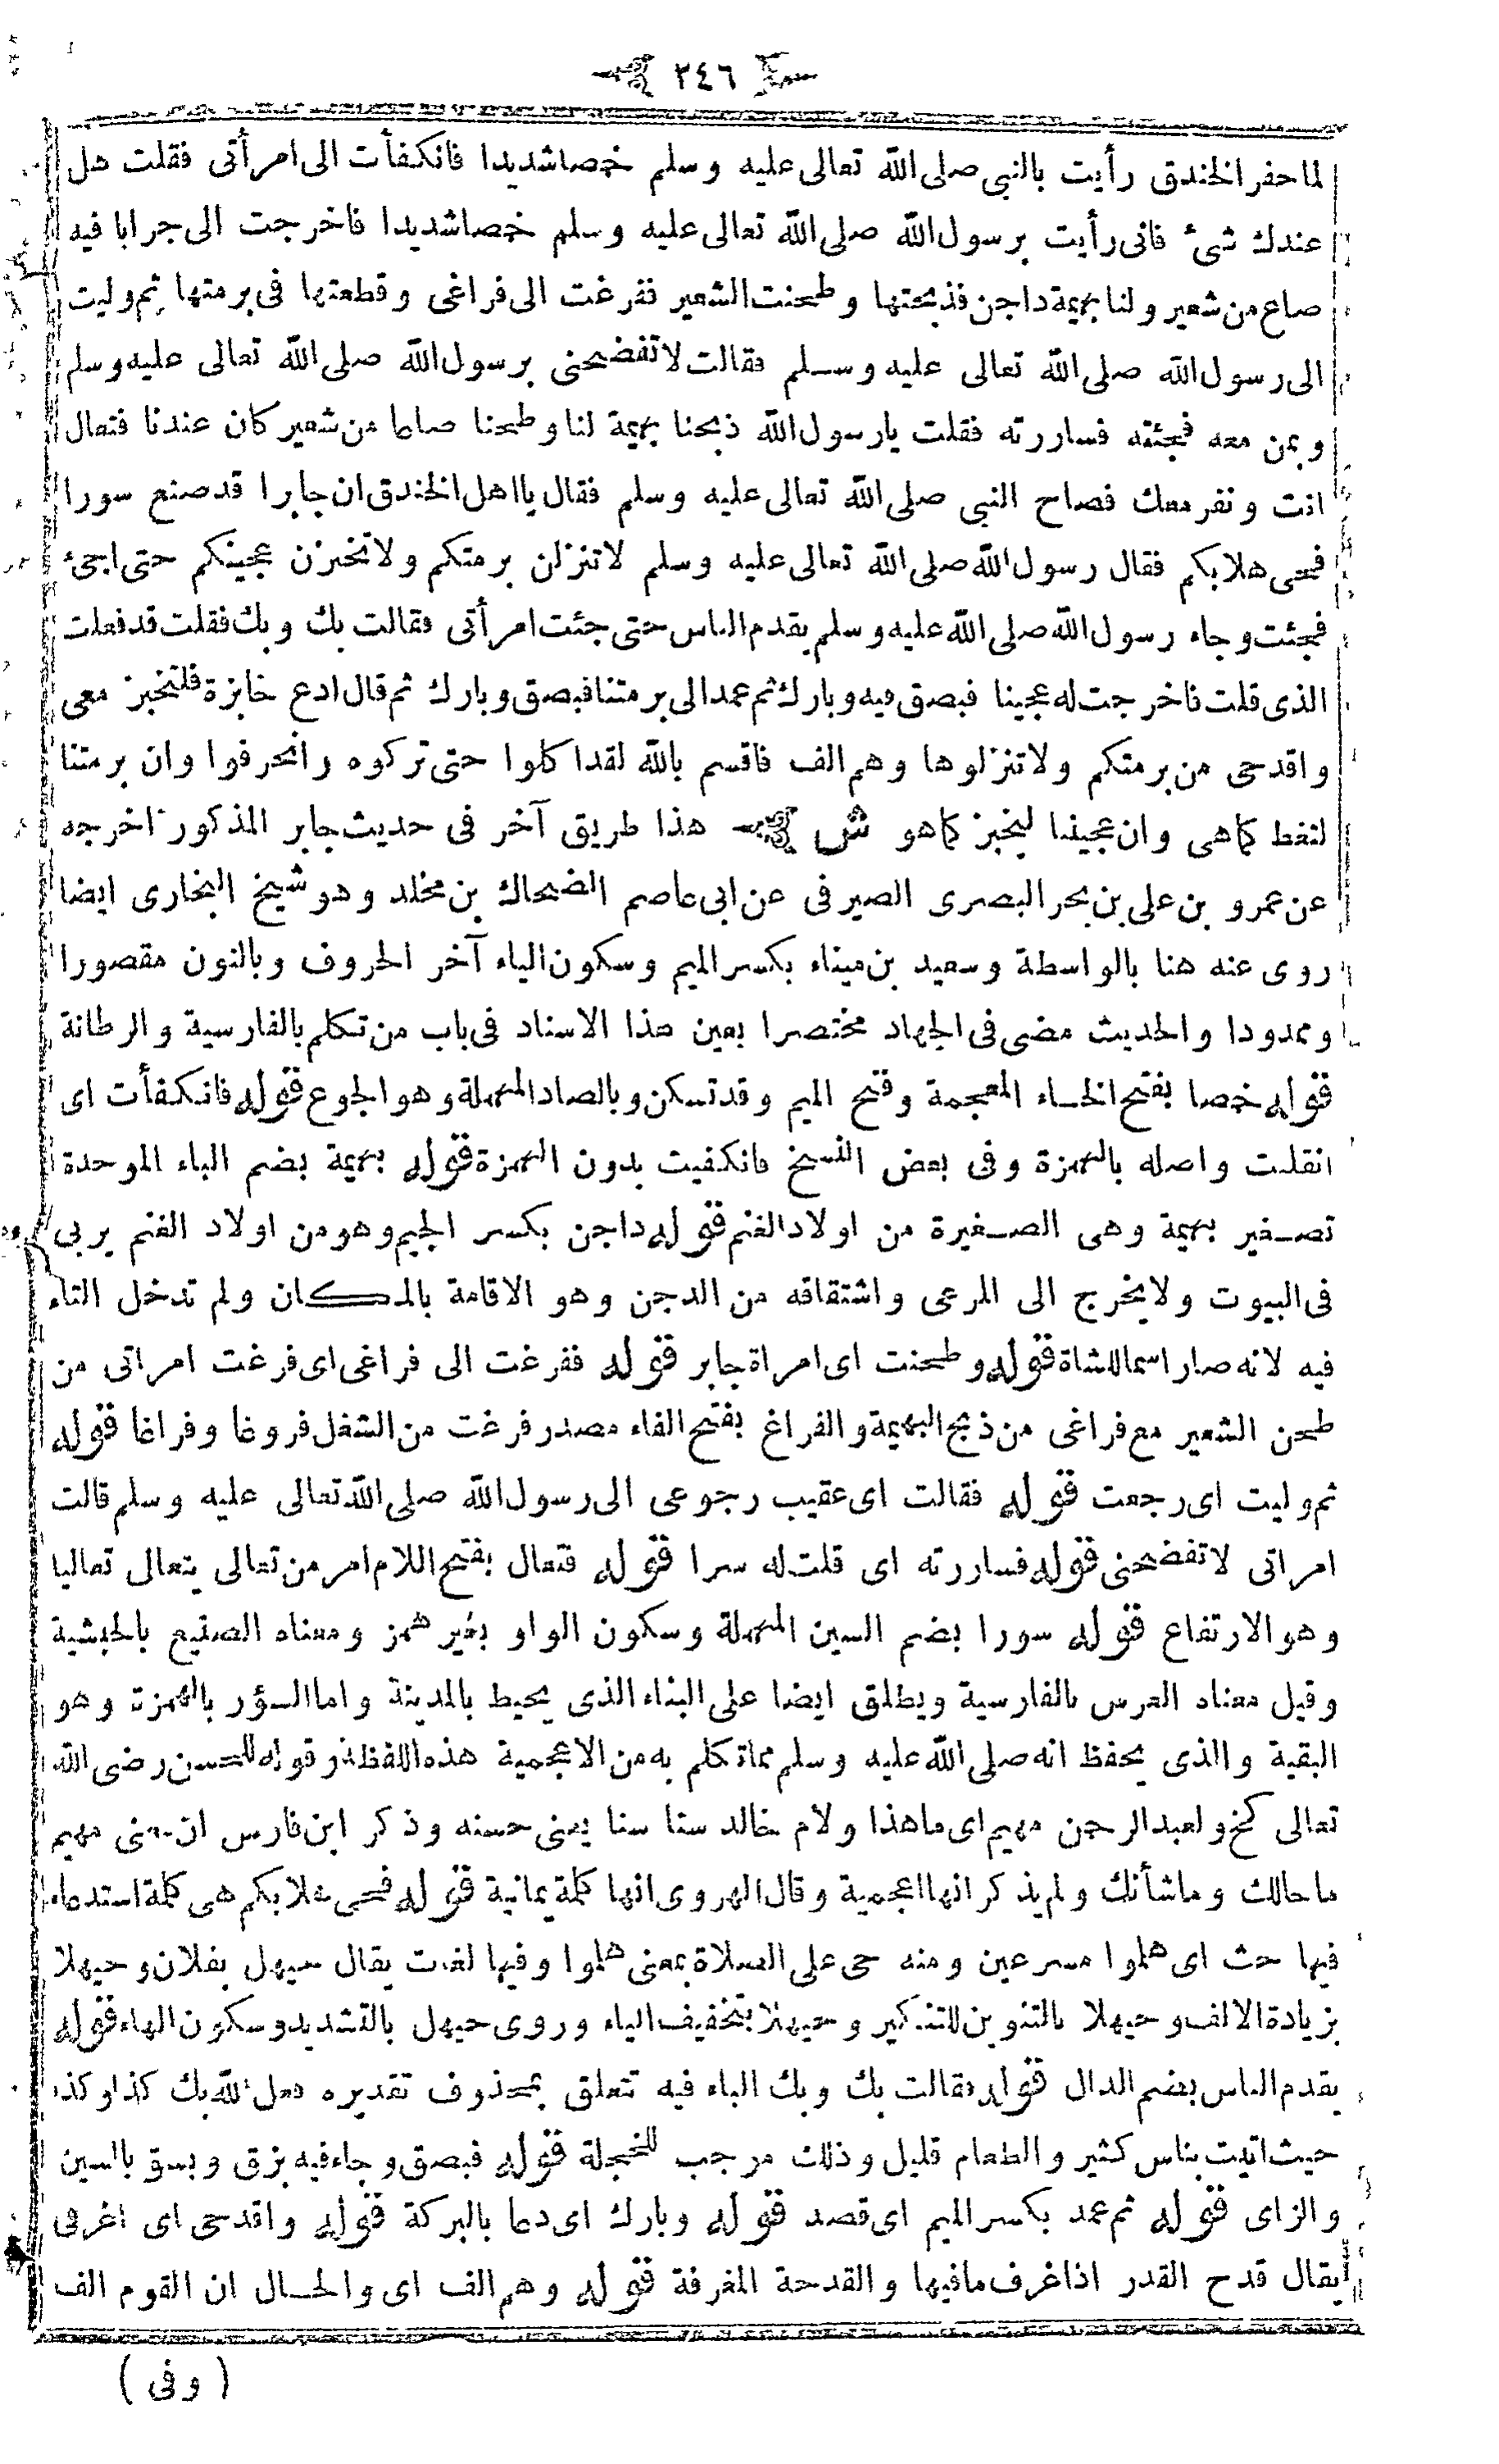 ٣٤٦
لما حفر الخندق رأيت بالنبى صلى الله تعالى عليه وسلم خمصا شديدا فانكفأت الى امرأتى فقلت هل
عندك شئ فانى رأيت برسول الله صلى الله تعالى عليه وسلم خمصا شديدا فاخرجت الى جرابا فيه
صاع من شعير ولنا بهيمة داجن فذبحتها وطحنت الشعير ففرغت الى فراغى وقطعتها فى برمتها ثم وليت
الى رسول الله صلى الله تعالى عليه وسلم فقالت لا تفضحنى برسول الله صلى الله تعالى عليه وسلم
وبمن معه فجئته فساررته فقلت يا رسول الله ذبحنا بهيمة لنا وطحنا صاعا من شعير كان عندنا فتعال
انت ونفر معك فصاح النبى صلى الله تعالى عليه وسلم فقال يا اهل الخندق ان جابرا قد صنع سورا
فحى هلا بكم فقال رسول الله صلى الله تعالى عليه وسلم لا تنزلن برمتكم ولا تخبزن عجينكم حتى اجئ
فجئت وجاء رسول الله صلى الله عليه وسلم يقدم الناس حتى جئت امرأتى فقالت بك وبك فقلت قد فعلت
الذى قلت فاخرجت له عجينا فبصق فيه وبارك ثم عمد الى برمتنا فبصق وبارك ثم قال ادع خابزة فلتخبز معى
واقدحى من برمتكم ولا تنزلوها وهم الف فاقسم بالله لقد اكلوا حتى تركوه وانحرفوا وان برمتنا
لتغط كما هى وان عجيننا ليخبز كما هو ش هذا طريق آخر فى حديث جابر المذكور اخرجه
عن عمرو بن على بن بحر البصرى الصيرفى عن ابى عاصم الضحاك بن مخلد وهو شيخ البخارى ايضا
روى عنه هنا بالواسطة وسعيد بن ميناء بكسر الميم وسكون الياء آخر الحروف وبالنون مقصورا
وممدودا والحديث مضى فى الجهاد مختصرا بعين هذا الاسناد فى باب من تكلم بالفارسية والرطانة
قوله خمصا بفتح الخاء المعجمة وفتح الميم وقد تسكن وبالصاد المهملة وهو الجوع قوله فانكفأت اى
انقلبت واصله بالهمزة وفى بعض النسخ فانكفيت بدون الهمزة قوله بهيمة بضم الباء الموحدة
تصغير بهمة وهى الصغيرة من اولاد الغنم قوله داجن بكسر الجيم وهو من اولاد الغنم يربى
فى البيوت ولا يخرج الى المرعى واشتقاقه من الدجن وهو الاقامة بالمكان ولم تدخل التاء
فيه لانه صار اسما للشاة قوله وطحنت اى امراة جابر قوله ففرغت الى فراغى اى فرغت امراتى من
طحن الشعير مع فراغى من ذبح البهيمة والفراغ بفتح الفاء مصدر فرغت من الشغل فروغا وفراغا قوله
ثم وليت اى رجعت قوله فقالت اى عقيب رجوعى الى رسول الله صلى الله تعالى عليه وسلم قالت
امراتى لا تفضحنى قوله فساررته اى قلت له سرا قوله فتعال بفتح اللام امر من تعالى يتعالى تعاليا
وهو الارتفاع قوله سورا بضم السين المهملة وسكون الواو بغير همز ومعناه الصنيع بالحبشية
وقيل معناه العرس بالفارسية ويطلق ايضا على البناء الذى يحيط بالمدينة واما السؤر بالهمزة وهو
البقية والذى يحفظ انه صلى الله عليه وسلم مما تكلم به من الاعجمية هذه اللفظة وقوله للحسن رضى الله
تعالى كخ ولعبد الرحمن مهيم اى ما هذا ولام خالد سنا سنا يعنى حسنه وذكر ابن فارس ان معنى مهيم
ما حالك وما شأنك ولم يذكر انها اعجمية وقال الهروى انها كلمة يمانية قوله فحى هلا بكم هى كلمة استدعاء
فيها حث اى هلموا مسرعين ومنه حى على الصلاة بمعنى هلموا وفيها لغات يقال حيهل بفلان وحيهلا
بزيادة الالف وحيهلا بالتنوين للتنكير وحيهلا بتخفيف الياء وروى حيهل بالتشديد وسكون الهاء قوله
يقدم الناس بضم الدال قوله فقالت بك وبك الباء فيه تتعلق بمحذوف تقديره فعل الله بك كذا وكذا
حيث اتيت بناس كثير والطعام قليل وذلك موجب للخجلة قوله فبصق وجاء فيه بزق وبسق بالسين
والزاى قوله ثم عمد بكسر الميم اى قصد قوله وبارك اى دعا بالبركة قوله واقدحى اى اغرفى
يقال قدح القدر اذا غرف ما فيها والقدحة المغرفة قوله وهم الف اى والحال ان القوم الف
( وفى )